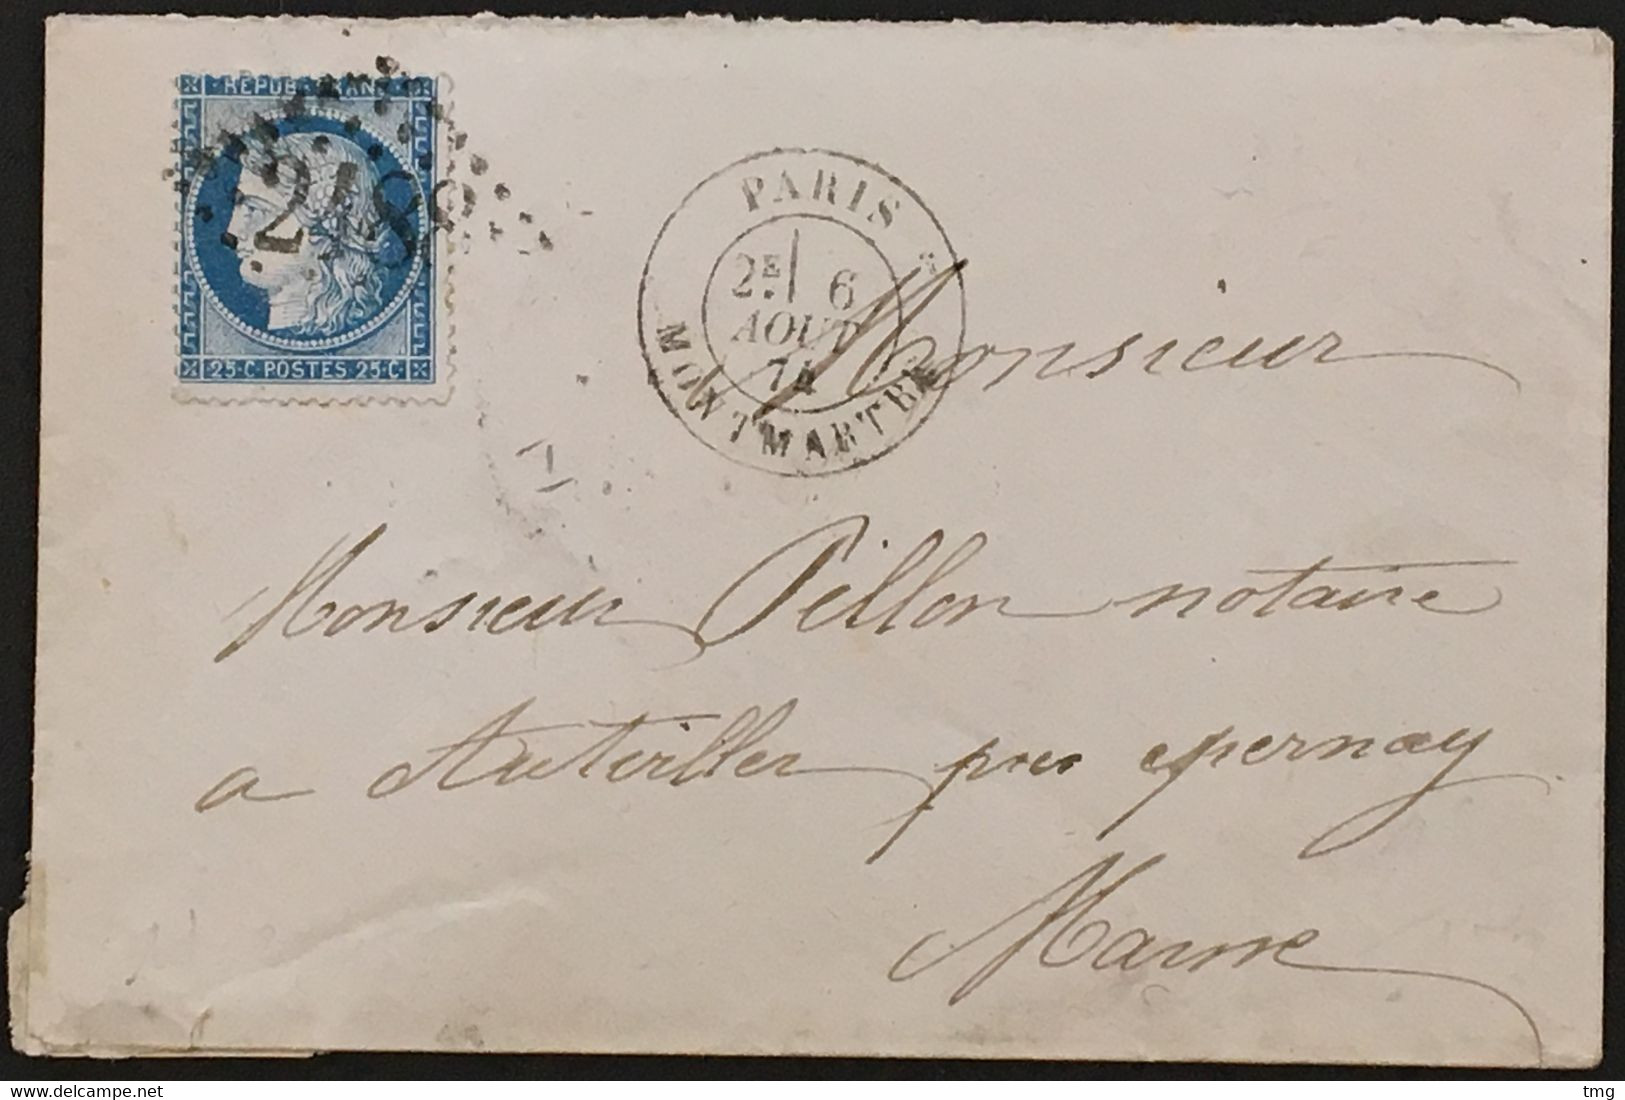 REPUB. FRANC.
2488
25·C POSTES 25·C
PARIS
2E 6
AOUT
74
MONTMARTRE
Monsieur
Monsieur Pillon notaire
a Auterller pres epernay
Marne
www.delcampe.net
tmg